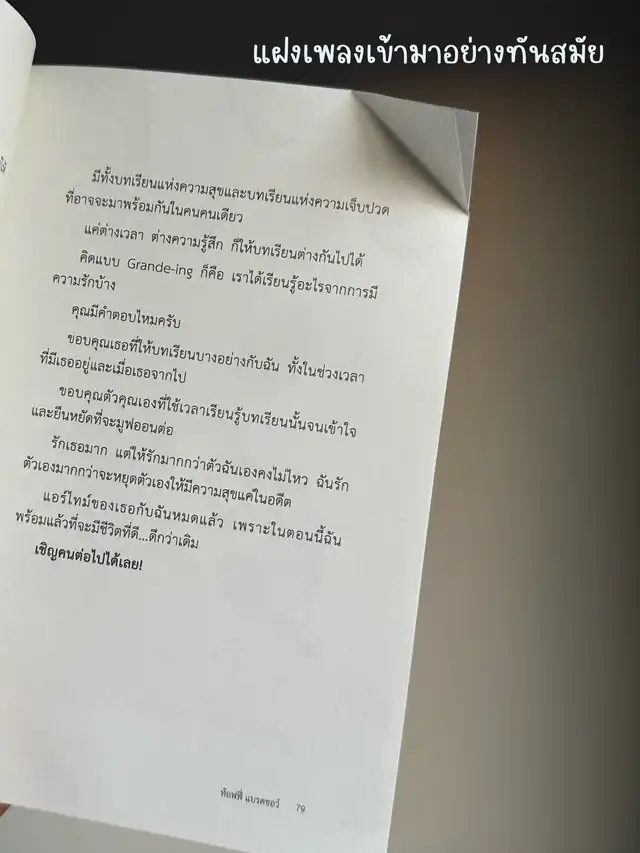 แฝงเพลงเข้ามาอย่างทันสมัย
มีทั้งบทเรียนแห่งความสุขและบทเรียนแห่งความเจ็บปวด
ที่อาจจะมาพร้อมกันในคนคนเดียว
แค่ต่างเวลา ต่างความรู้สึก ก็ให้บทเรียนต่างกันไปได้
คิดแบบ Grande-ing ก็คือ เราได้เรียนรู้อะไรจากการมี
ความรักบ้าง
คุณมีคำตอบไหมครับ
ขอบคุณเธอที่ให้บทเรียนบางอย่างกับฉัน ทั้งในช่วงเวลา
ที่มีเธออยู่และเมื่อเธอจากไป
ขอบคุณตัวคุณเองที่ใช้เวลาเรียนรู้บทเรียนนั้นจนเข้าใจ
และยืนหยัดที่จะมูฟออนต่อ
รักเธอมาก แต่ให้รักมากกว่าตัวฉันเองคงไม่ไหว ฉันรัก
ตัวเองมากกว่าจะหยุดตัวเองให้มีความสุขแค่ในอดีต
แอร์ไทม์ของเธอกับฉันหมดแล้ว เพราะในตอนนี้ฉัน
พร้อมแล้วที่จะมีชีวิตที่ดี...ดีกว่าเดิม
เชิญคนต่อไปได้เลย!
ท้อฟฟี่ แบรดชอว์ 79